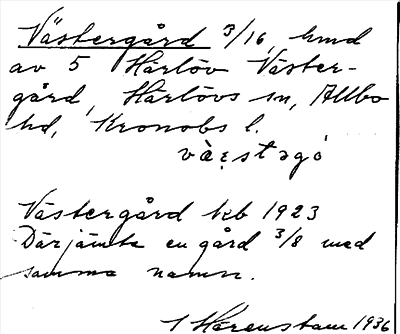 Västergård 3/16, hmd
av 5 Härlöv Väster-
gård, Härlövs sn, Allbo
hd, Kronobs l.
Västergård kb 1923
Därjämte en gård 3/8 med
samma namn.
Harenstam 1936